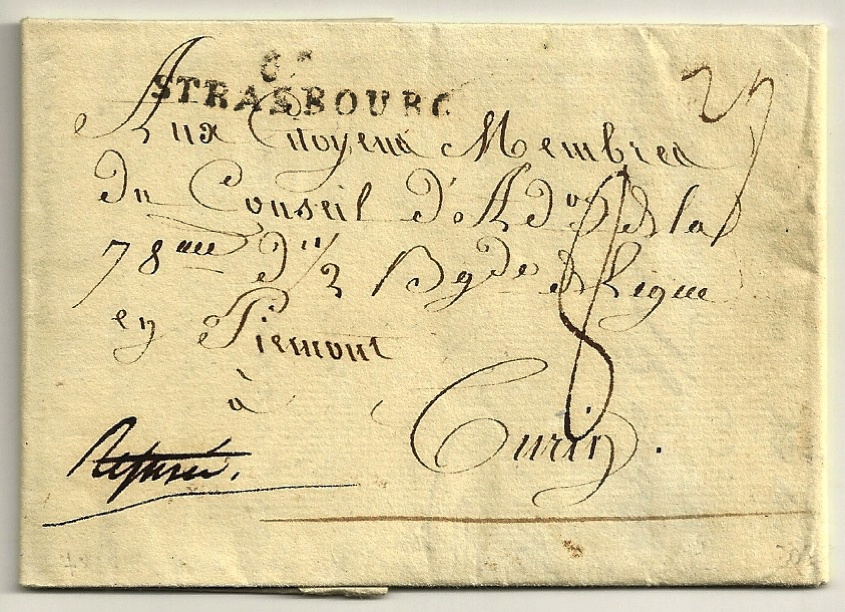 STRASBOURG
Aux Citoyens Membres
du Conseil d'Ad^on de la
78^me d^i 1/2 Bg^de de Ligne
en Piemont
à Turin.
Refusée.